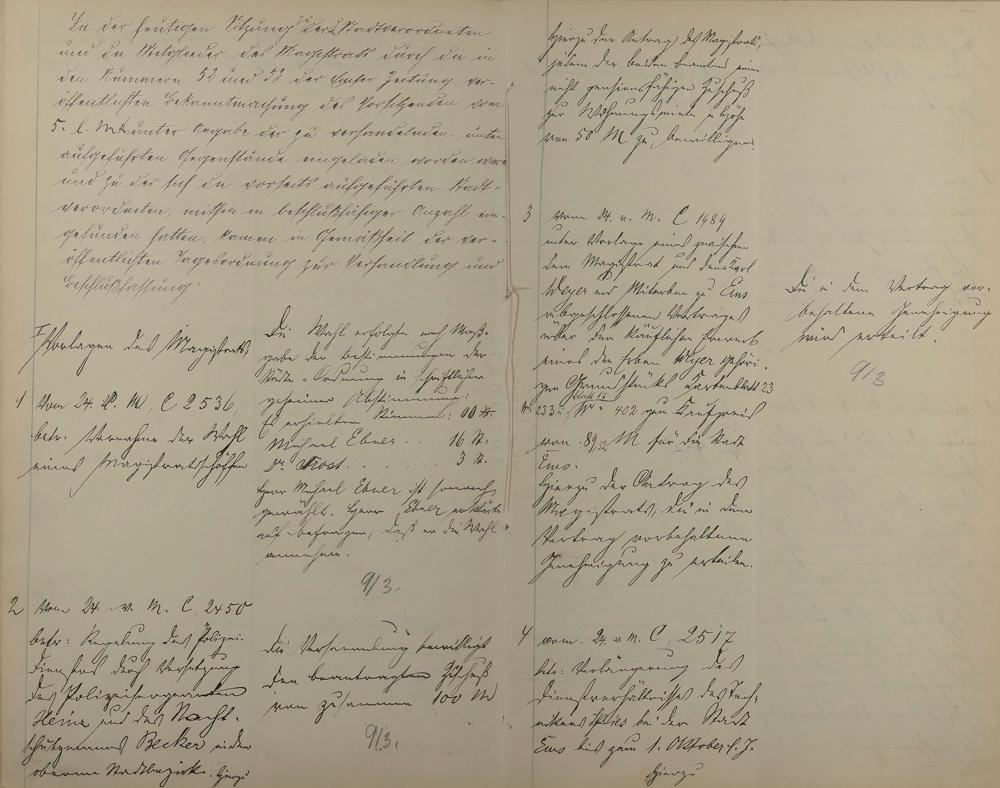 In der heutigen Sitzung, zu der die Stadtverordneten
und die Mitglieder des Magistrats durch die in
den Nummern 52 und 53 der Emser Zeitung ver-
öffentlichten Bekanntmachung des Vorsitzenden vom
5. l. Mts unter Angabe der zu verhandelnden unten
aufgeführten Gegenstände eingeladen worden waren
und zu der sich die vorseits aufgeführten Stadt-
verordneten, mithin in beschlußfähiger Anzahl ein-
gefunden hatten, kamen in Gemäßheit der ver-
öffentlichten Tagesordnung zur Verhandlung und
Beschlußfassung:
I Vorlagen des Magistrats
1 Vom 24. v. M. C 2536,
betr. Vornahme der Wahl
eines Magistratsschöffen
Die Wahl erfolgte nach Maß-
gabe der Bestimmungen der
Städte-Ordnung in schriftlicher
geheimer Abstimmung:
Es erhielten Stimmen:
Michael Ebner . . 16 St.
Dr. Frost . . . . . . 3 St.
Herr Michael Ebner ist sonach
gewählt. Herr Ebner erklärte
auf Befragen, daß er die Wahl
annehme.
9/3.
2 Vom 24. v. M. C. 2450
betr: Regelung des Polizei-
dienstes durch Versetzung
des Polizeisergeanten
Heinz und des Nacht-
schutzmanns Becker in den
oberen Stadtbezirk. Hierzu
Die Versammlung bewilligt
den beantragten Zuschuß
von zusammen 100 M
9/3.
Hierzu der Antrag des Magistrats,
jedem der beiden Beamten einen
nicht pensionsfähigen Zuschuß
zur Wohnungsmiete in Höhe
von 50 M zu bewilligen.
3 Vom 24. v. M. C 1989.
unter Vorlage eines zwischen
dem Magistrat und dem Karl
Weyer und Miterben zu Ems
abgeschlossenen Vertrages
über den käuflichen Erwerb
eines den Erben Weyer gehöri-
gen Grundstücks Kartenblatt 23
No. 233 Blatt 17 No. 402 zum Kaufpreis
von 89,32 M für die Stadt
Ems.
Hierzu der Antrag des
Magistrats, die in dem
Vertrag vorbehaltene
Genehmigung zu erteilen.
Die in dem Vertrag vor-
behaltene Genehmigung
wird erteilt.
9/3
4 vom 24. v. M. C, 2517
betr: Verlängerung des
Dienstverhältnisses des Tech-
nikers bei der Stadt
Ems bis zum 1. Oktober l. J.
Hierzu